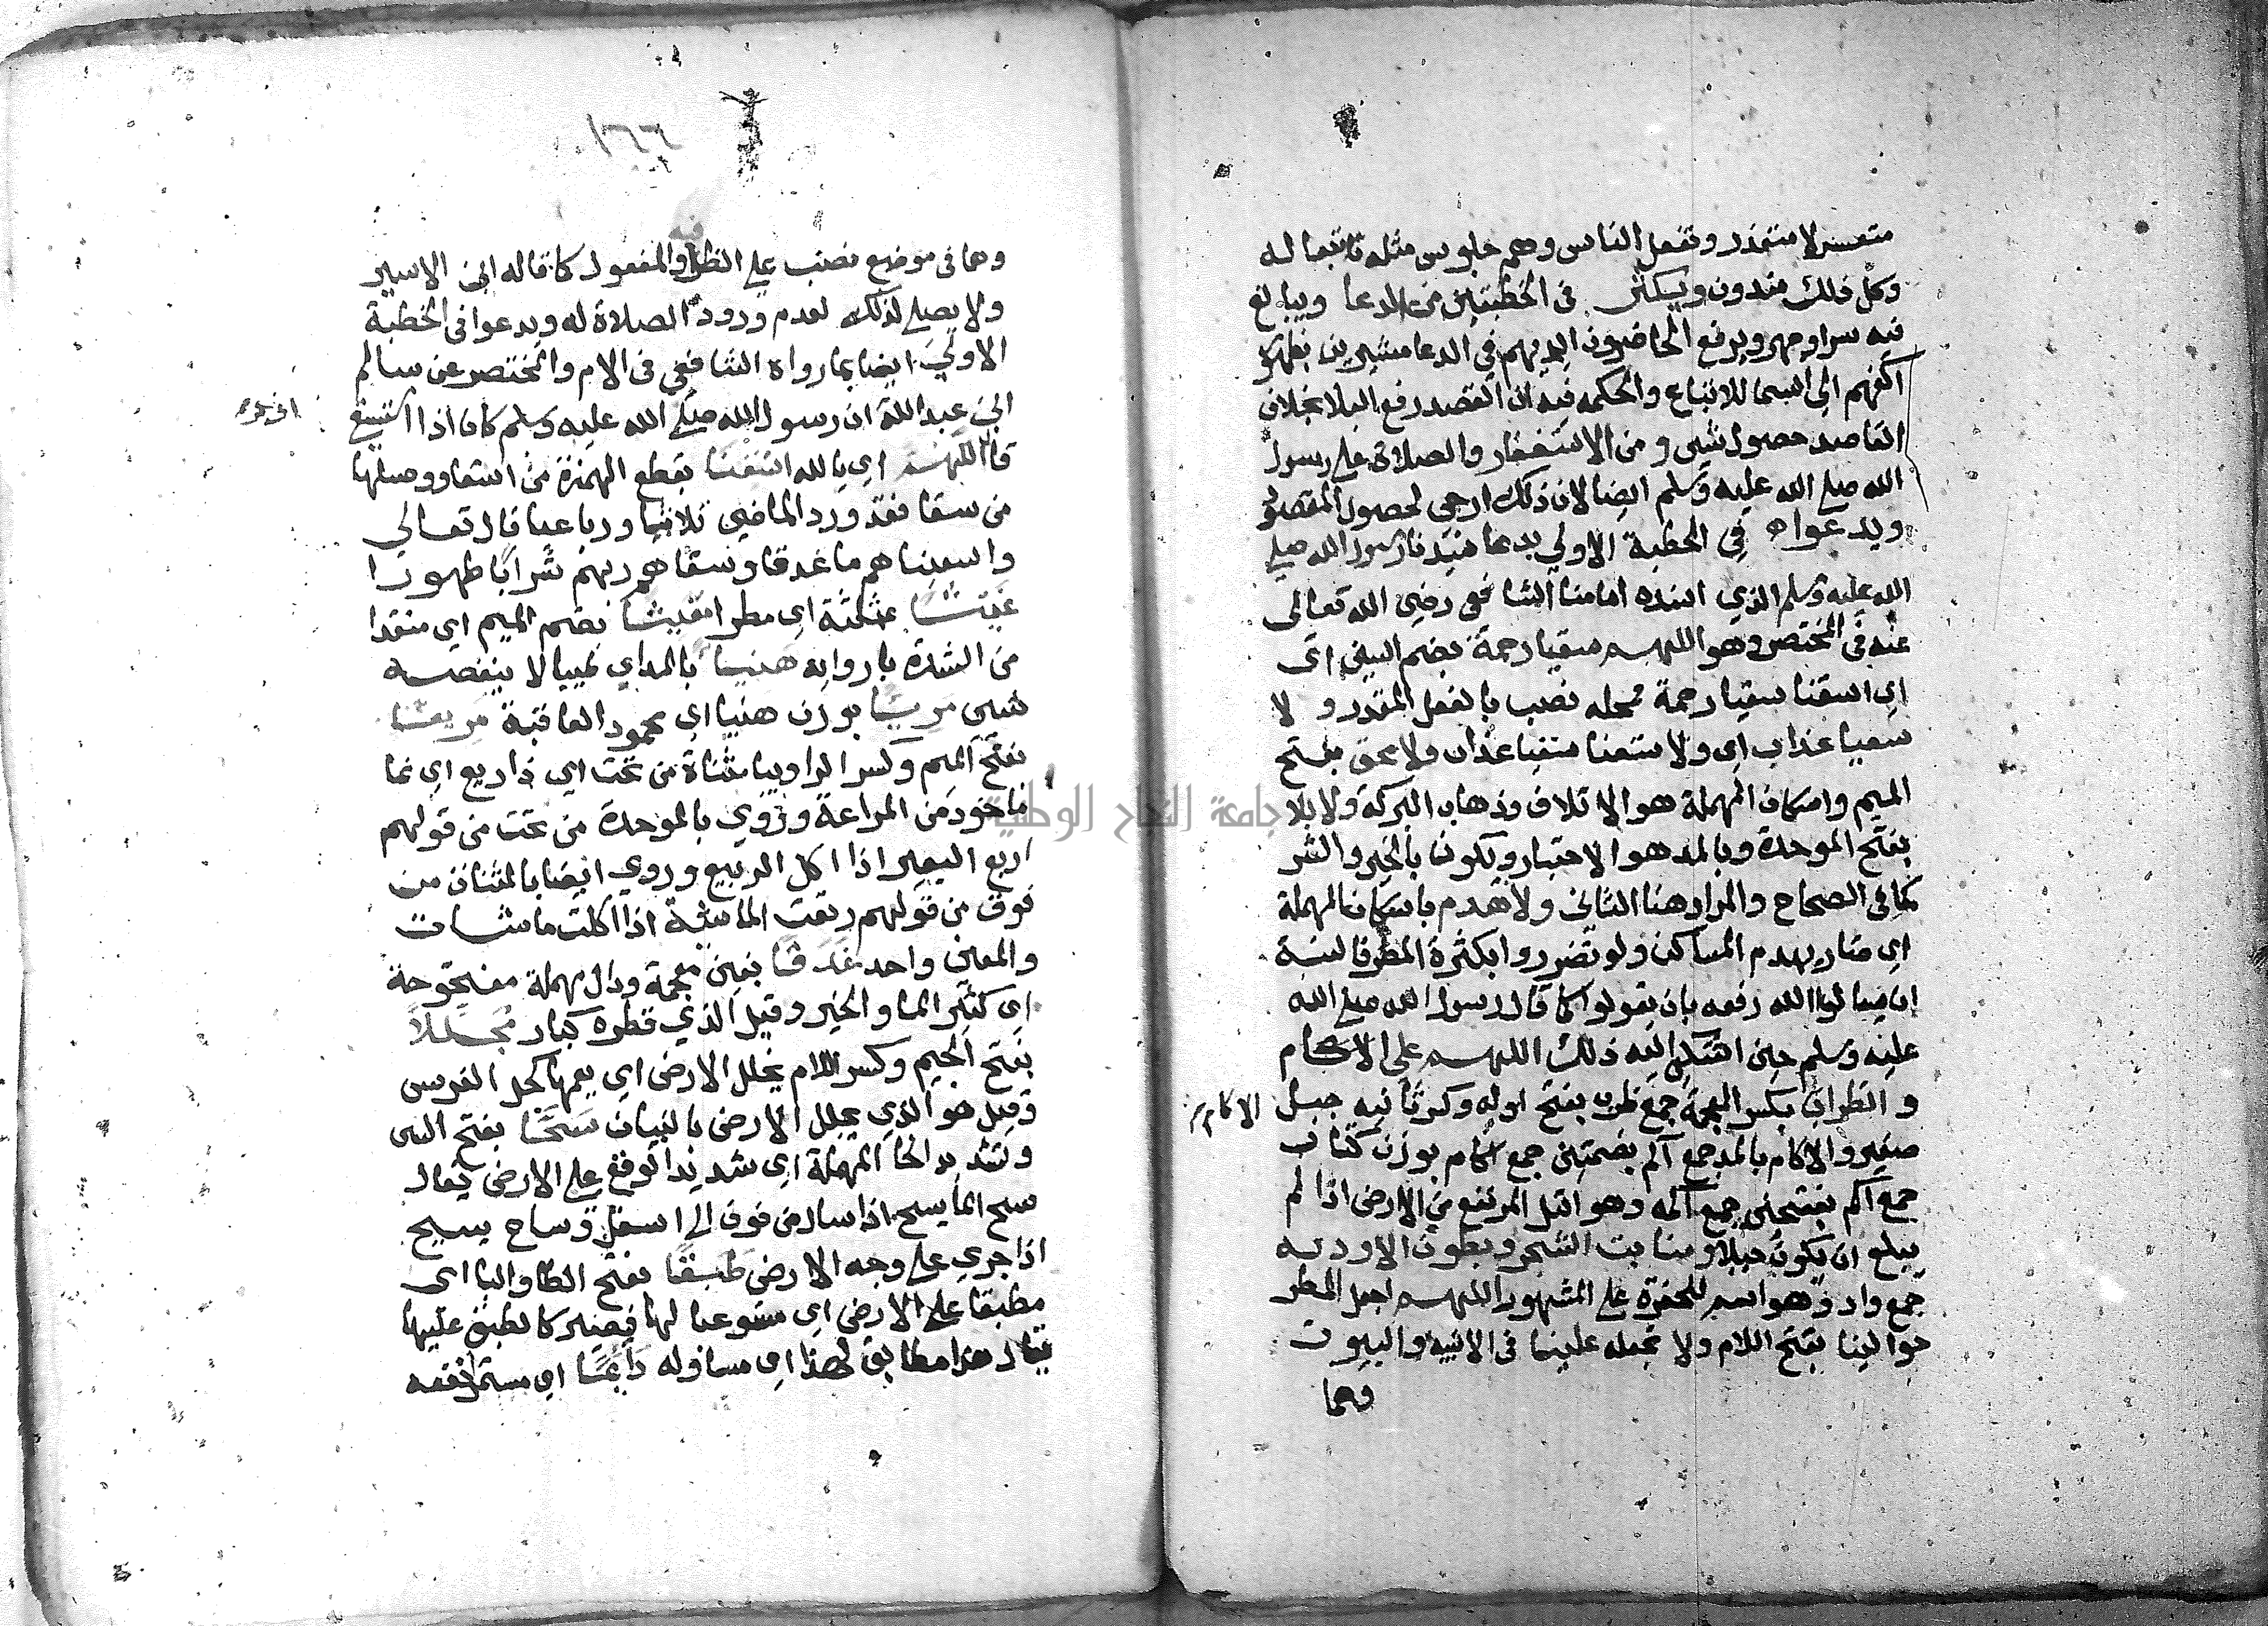 متعسر لا متعذر وتفعل الناس وهم جلوس مثله تبعا له
وكل ذلك مندوب ويكثر في الخطبتين من الدعا ويبالغ
فيه سرا وجهرا ويرفع الحاضرون ايديهم في الدعا مشيرين بظهور
اكفهم الى السما للاتباع والحكمة فيه ان القصد رفع البلا بخلاف
القاصد حصول شي ومن الاستغفار والصلاة على رسول
الله صلى الله عليه وسلم ايضا لان ذلك ارجى لحصول المقصود
ويدعوا في الخطبة الاولي بدعا سيدنا رسول الله صلى
الله عليه وسلم الذي اسنده امامنا الشافعي رضي الله تعالى
عنه في المختصر وهو اللهم سقيا رحمة بضم السين اى
اي اسقنا سقيا رحمة محله نصب بالفعل المقدر ولا
سقيا عذاب اى ولا سقيا عذاب ولا محق بفتح
الميم واسكان المهملة هو الاتلاف وذهاب البركة ولا بلا
بفتح الموحدة وبالمد هو الاختبار ويكون بالخير والشر
كما في الصحاح والمراد هنا الثاني ولا هدم باسكان المهملة
اي ضار يهدم المساكن ولو تضرروا بكثرة المطر فالسنة
ان يسالوا الله رفعه بان يقولوا كما قال رسول الله صلى الله
عليه وسلم حين اشتكى اليه ذلك اللهم على الاكام
والظراب بكسر المعجمة جمع ظرب بفتح اوله وكسر ثانيه جبل
الاكام
صغير والاكام بالمد جمع اكم بضمتين جمع اكام بوزن كتاب
جمع اكم بفتحتين جمع اكمة وهو التل المرتفع من الارض اذا لم
يبلغ ان يكون جبلا ومنابت الشجر وبطون الاودية
جمع واد وهو اسم للحفرة على المشهور اللهم اجعل المطر
حوالينا بفتح اللام ولا تجعله علينا في الابنية والبيوت
وهما
١٦٦
فيه
وهما في موضع نصب على الظرف والمفعول كما قاله ابن الاثير
ولا يصلى لذلك لعدم ورود الصلاة له ويدعوا في الخطبة
الاولي ايضا بما رواه الشافعي في الام والمختصر عن سالم
ابن عبد الله ان رسول الله صلى الله عليه وسلم كان اذا استسقى
قال اللهم اي يا لله اسقنا بقطع الهمزة من اسقا ووصلها
من سقا فقد ورد الماضي ثلاثيا ورباعيا قال تعالي
واسقيناهم ما غدقا وسقاهم ربهم شرابا طهورا
غيثا بمثلثة اي مطرا مغيثا بضم الميم اي منقذا
من الشدة باروائه هنيئا بالمد اي طيبا لا ينغصه
شي مريئا بوزن هنيا اي محمود العاقبة مريعا
بفتح الميم وكسر الرا وبيا مثناة من تحت اي ذا ريع اي نما
ماخوذ من المراعة وروي بالموحدة من تحت من قولهم
اربع البعير اذا اكل الربيع وروي ايضا بالمثناة من
فوق من قولهم رتعت الماشية اذا اكلت ما شات
والمعنى واحد غدقا بغين معجمة ودال مهملة مفتوحة
اي كثير الما والخير وقيل الذي قطره كبار مجللا
بفتح الجيم وكسر اللام يجلل الارض اي يعمها كجل الفرس
وقيل هو الذي يجلل الارض بالنبات سحا بفتح السين
وتشديد الحا المهملة اي شديد الوقع على الارض يقال
سح الما يسح اذا سال من فوق الى اسفل وساح يسيح
اذا جرى على وجه الارض طبقا بفتح الطا والبا اى
مطبقا على الارض اي مستوعبا لها فيصير كالطبق عليها
يقال هذا مطابق لهذا اي مساو له دائما اي مستمرا نفعه